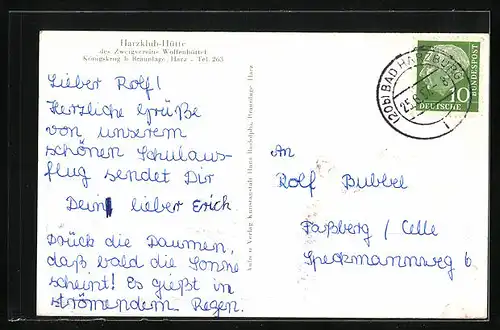 Harzklub-Hütte
des Zweigvereins Wolfenbüttel
Königskrug b. Braunlage, Harz - Tel. 265
Lieber Rolf!
Herzliche Grüße
von unserem
schönen Schulaus-
flug sendet Dir
Dein lieber Erich
Drück die Daumen,
daß bald die Sonne
scheint! Es gießt in
strömendem Regen.
Verlag Kunstanstalt Hans Rudolphi, Braunlage Harz
(20b) BAD HARZBURG
10
DEUTSCHE
BUNDESPOST
An
Rolf Bubbel
Faßberg / Celle
Speckmannweg 6